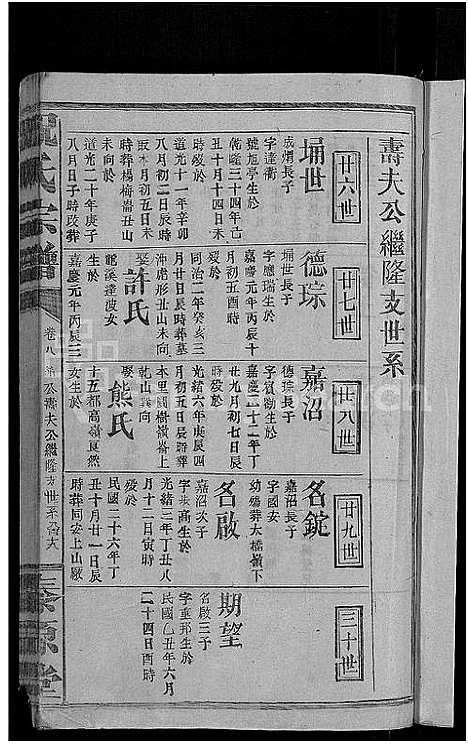 壽夫公繼隆支世系
廿六世
埇世
成烱長子
字達衢
號旭亭生於
乾隆三十四年己
丑十月十四日未
時歿於
道光十一年辛卯
八月初二日辰時
未時葬楊梅崙丑山
未向於
道光二十年庚子
八月日子時改葬
廿七世
德琮
埇世長子
字應瑞生於
嘉慶元年丙辰十
月初五日
時歿於
同治二年癸亥三
月廿日辰時葬墓
沖虎形丑山未向
娶
許氏
龍溪達波女
生於
嘉慶元年丙辰三
廿八世
嘉沼
德琮長子
字賓衡生於
嘉慶二十二年丁
丑九月初七日辰
時歿於
光緒六年庚辰四
月初五日辰時葬
本里園樹嶺崙上
乾山巽向
娶
熊氏
十五都高嶺良然
女生於
廿九世
名錠
嘉沼長子
字國安
幼殤葬大橋嶺下
名啟
嘉沼次子
字步高生於
光緒三年丁丑八
月十二日寅時
歿於
民國二十六年丁
丑十月廿一日辰
時葬同安上山廠
三十世
期望
名啟三子
字重邦生於
民國乙丑年六月
二十四日酉時
氏宗譜
卷八
公壽夫公繼隆支世系
源堂